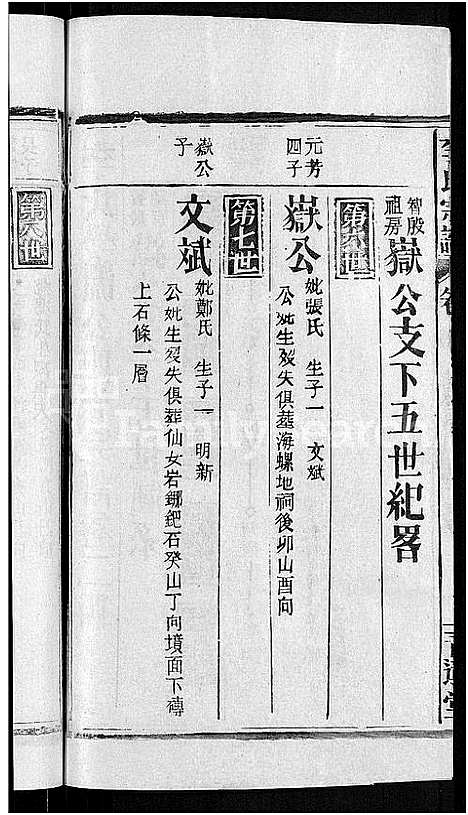 智殷祖房嶽公支下五世紀畧
第六世
元芳四子
嶽公
妣張氏 生子一 文斌
公妣生歿失俱葬海螺地祠後卯山酉向
第七世
嶽公子
文斌
妣鄭氏 生子一 明新
公妣生歿失俱葬仙女岩鎁鈀石癸山丁向墳面下磚
上石條一層
第八世